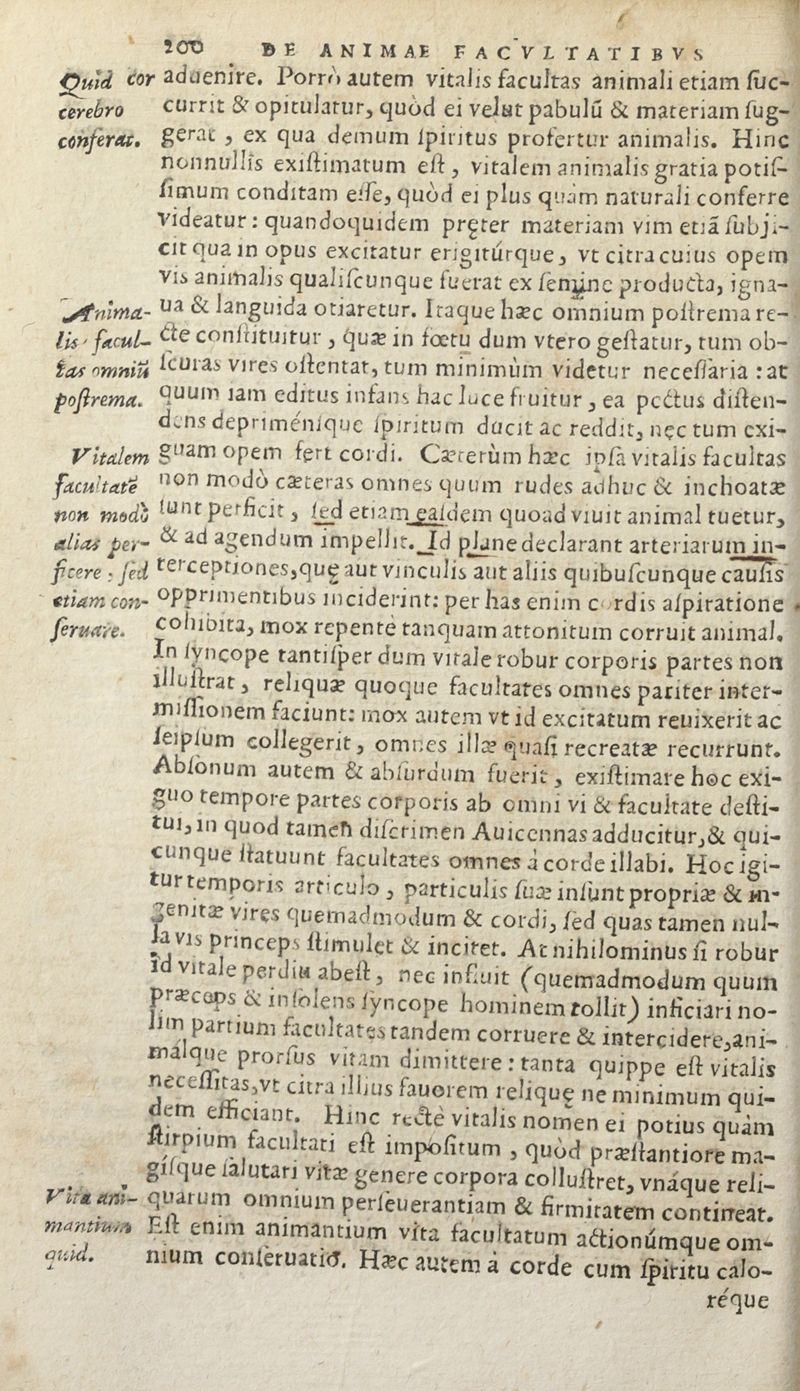 200 DE ANIMAE FACVLTATIBVS
Quid cor aduenire. Porrò autem vitalis facultas animali etiam ſuc-
cerebro currit & opitulatur, quòd ei velut pabulũ & materiam ſug-
conferat. gerat, ex qua demum ſpiritus profertur animalis. Hinc
nonnullis exiſtimatum eſt, vitalem animalis gratia potiſ-
ſimum conditam eſſe, quòd ei plus quàm naturali conferre
videatur: quandoquidem pręter materiam vim etiã ſubji-
cit qua in opus excitatur erigitúrque, vt citra cuius opem
vis animalis qualiſcunque fuerat ex ſemine producta, igna-
Anima- ua & languida otiaretur. Itaque hæc omnium poſtrema re-
lis facul- cte conſtituitur, quæ in fœtu dum vtero geſtatur, tum ob-
tas omniũ ſcuras vires oſtentat, tum minimùm videtur neceſſaria: at
poſtrema. quum iam editus infans hac luce fruitur, ea pectus diſten-
dens depriménſque ſpiritum ducit ac reddit, nęc tum exi-
Vitalem guam opem fert cordi. Cæterùm hæc ipſa vitalis facultas
facultatẽ non modò cæteras omnes quum rudes adhuc & inchoatæ
non modò ſunt perficit, ſed etiam eaſdem quoad viuit animal tuetur,
alias per- & ad agendum impellit. Id planè declarant arteriarum in-
ficere: ſed terceptiones, quę aut vinculis aut aliis quibuſcunque cauſis
etiam con- opprimentibus inciderint: per has enim cordis aſpiratione
ſeruare. cohibita, mox repentè tanquam attonitum corruit animal.
In ſyncope tantiſper dum vitale robur corporis partes non
illuſtrat, reliquæ quoque facultates omnes pariter inter-
miſſionem faciunt: mox autem vt id excitatum reuixerit ac
ſeipſum collegerit, omnes illæ quaſi recreatæ recurrunt.
Abſonum autem & abſurdum fuerit, exiſtimare hoc exi-
guo tempore partes corporis ab omni vi & facultate deſti-
tui, in quod tamen diſcrimen Auicennas adducitur, & qui-
cunque ſtatuunt facultates omnes à corde illabi. Hoc igi-
tur temporis articulo, particulis ſuæ inſunt propriæ & in-
genitæ vires quemadmodum & cordi, ſed quas tamen nul-
la vis princeps ſtimulet & incitet. At nihilominus ſi robur
id vitale perdiu abeſt, nec influit (quemadmodum quum
præceps & inſolens ſyncope hominem tollit) inficiari no-
lim partium facultates tandem corruere & intercidere, ani-
malque prorſus vitam dimittere: tanta quippe eſt vitalis
neceſſitas, vt citra illius fauorem reliquę ne minimum qui-
dem efficiant. Hinc rectè vitalis nomen ei potius quàm
ſtirpium facultati eſt impoſitum, quòd præſtantiore ma-
giſque ſalutari vitæ genere corpora colluſtret, vnáque reli-
Vita ani- quarum omnium perſeuerantiam & firmitatem contineat.
mantium Eſt enim animantium vita facultatum actionúmque om-
quid. nium conſeruatio. Hæc autem à corde cum ſpiritu calo-
réque